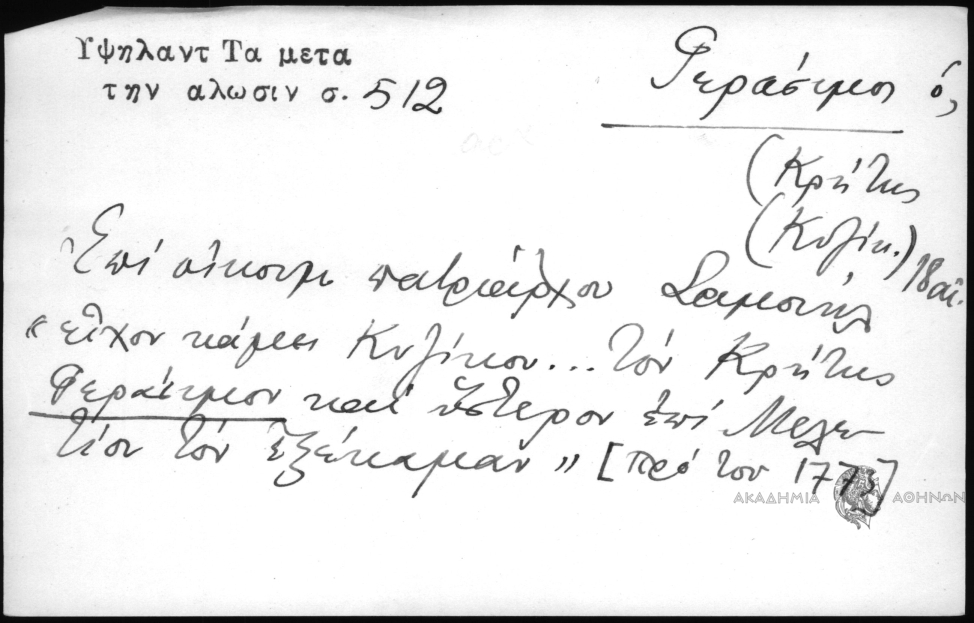 Υψηλαντ Τα μετα
την αλωσιν σ. 512
Γεράσιμος ὁ,
(Κρήτης
(Κυζίκ.) 18 αἰ.
Ἐπί οἰκουμ πατριάρχου Σαμουήλ
« εἶχον κάμει Κυζίκου... τόν Κρήτης
Γεράσιμον καί ὕστερον ἐπί Μελε-
τίου τόν ἐξέκαμαν » [πρό του 1773]
ΑΚΑΔΗΜΙΑ ΑΘΗΝΩΝ